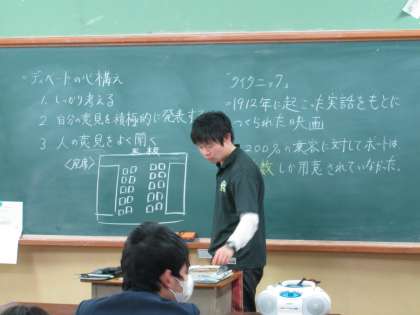 ディベートの心構え
1. しっかり考える
2. 自分の意見を積極的に発表す
3. 人の意見をよく聞く
〈座席〉
黒板
"タイタニック"
1912年に起こった実話をもとに
つくられた映画
200名の乗客に対してボートは
数しか用意されていなかった。